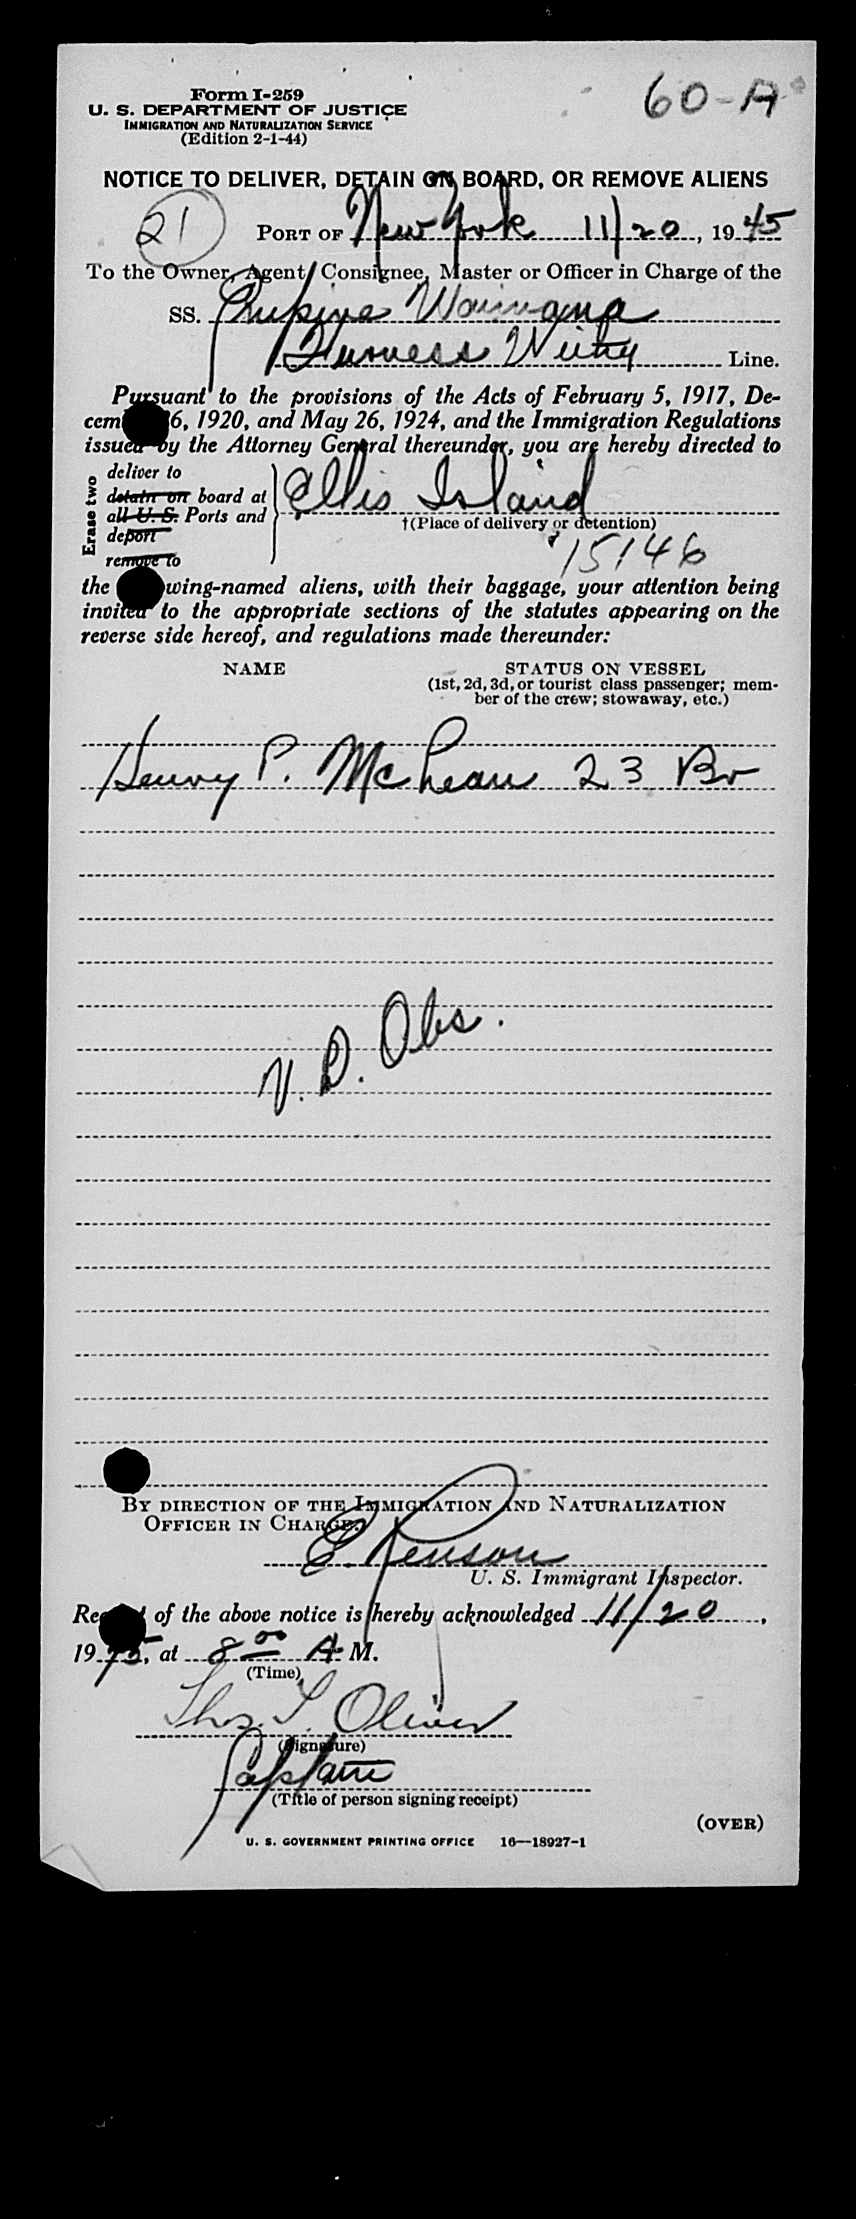 Form I-259
60-A
U. S. DEPARTMENT OF JUSTICE
IMMIGRATION AND NATURALIZATION SERVICE
(Edition 2-1-44)
NOTICE TO DELIVER, DETAIN ON BOARD, OR REMOVE ALIENS
21 PORT OF New York 11/20, 1945
To the Owner, Agent, Consignee, Master or Officer in Charge of the
SS. Empire Waimana
Furness Withy Line.
Pursuant to the provisions of the Acts of February 5, 1917, De-
cem 6, 1920, and May 26, 1924, and the Immigration Regulations
issued by the Attorney General thereunder, you are hereby directed to
Erase two
deliver to
detain on board at
all U. S. Ports and
deport
remove to
Ellis Island
†(Place of delivery or detention)
15146
the wing-named aliens, with their baggage, your attention being
invited to the appropriate sections of the statutes appearing on the
reverse side hereof, and regulations made thereunder:
NAME STATUS ON VESSEL
(1st, 2d, 3d, or tourist class passenger; mem-
ber of the crew; stowaway, etc.)
Henry P. McLean 23 Br
V. D. Obs.
BY DIRECTION OF THE IMMIGRATION AND NATURALIZATION
OFFICER IN CHARGE.
E. Renson
U. S. Immigrant Inspector.
Re t of the above notice is hereby acknowledged 11/20,
1945, at 8 00 A M.
(Time)
Thos. S. Oliver
(Signature)
Captain
(Title of person signing receipt)
(OVER)
U. S. GOVERNMENT PRINTING OFFICE 16—18927-1